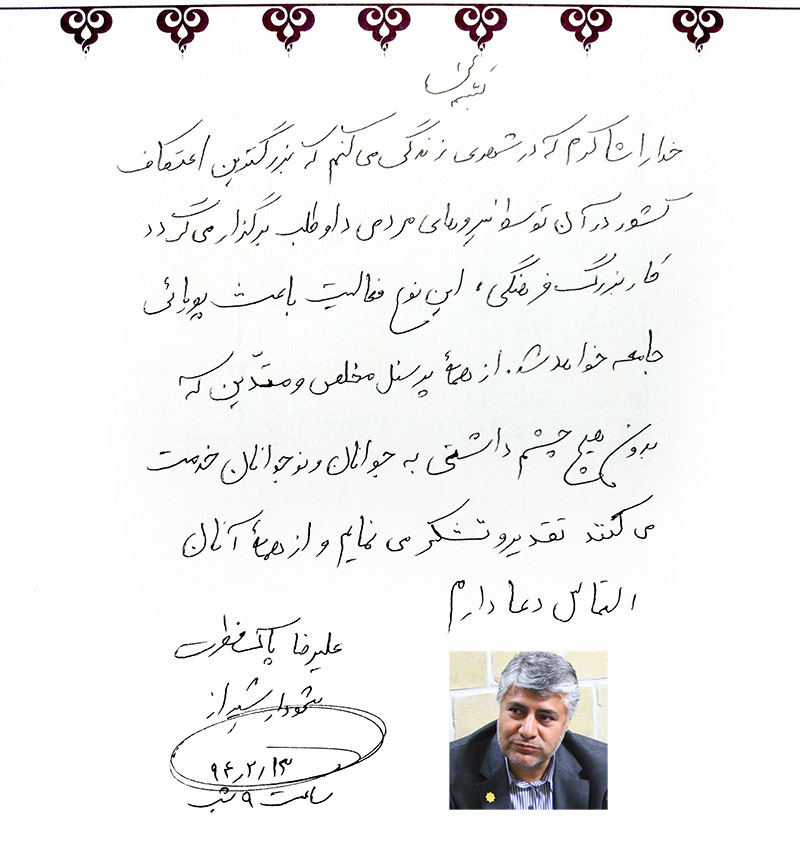 بسمه تعالی
خدا را شاکرم که در شهری زندگی می کنم که بزرگترین اعتکاف
کشور در آن توسط نیروهای مردمی داوطلب برگزار می گردد
کار بزرگ فرهنگی، این نوع فعالیت باعث پویائی
جامعه خواهد شد. از همهٔ پرسنل مخلص و متدّین که
بدون هیچ چشم داشتی به جوانان و نوجوانان خدمت
می کنند تقدیر و تشکر می نمایم و از همهٔ آنان
التماس دعا دارم
علیرضا پاک فطرت
شهردار شیراز
۹۴٫۲٫۱۳
ساعت ۹ شب